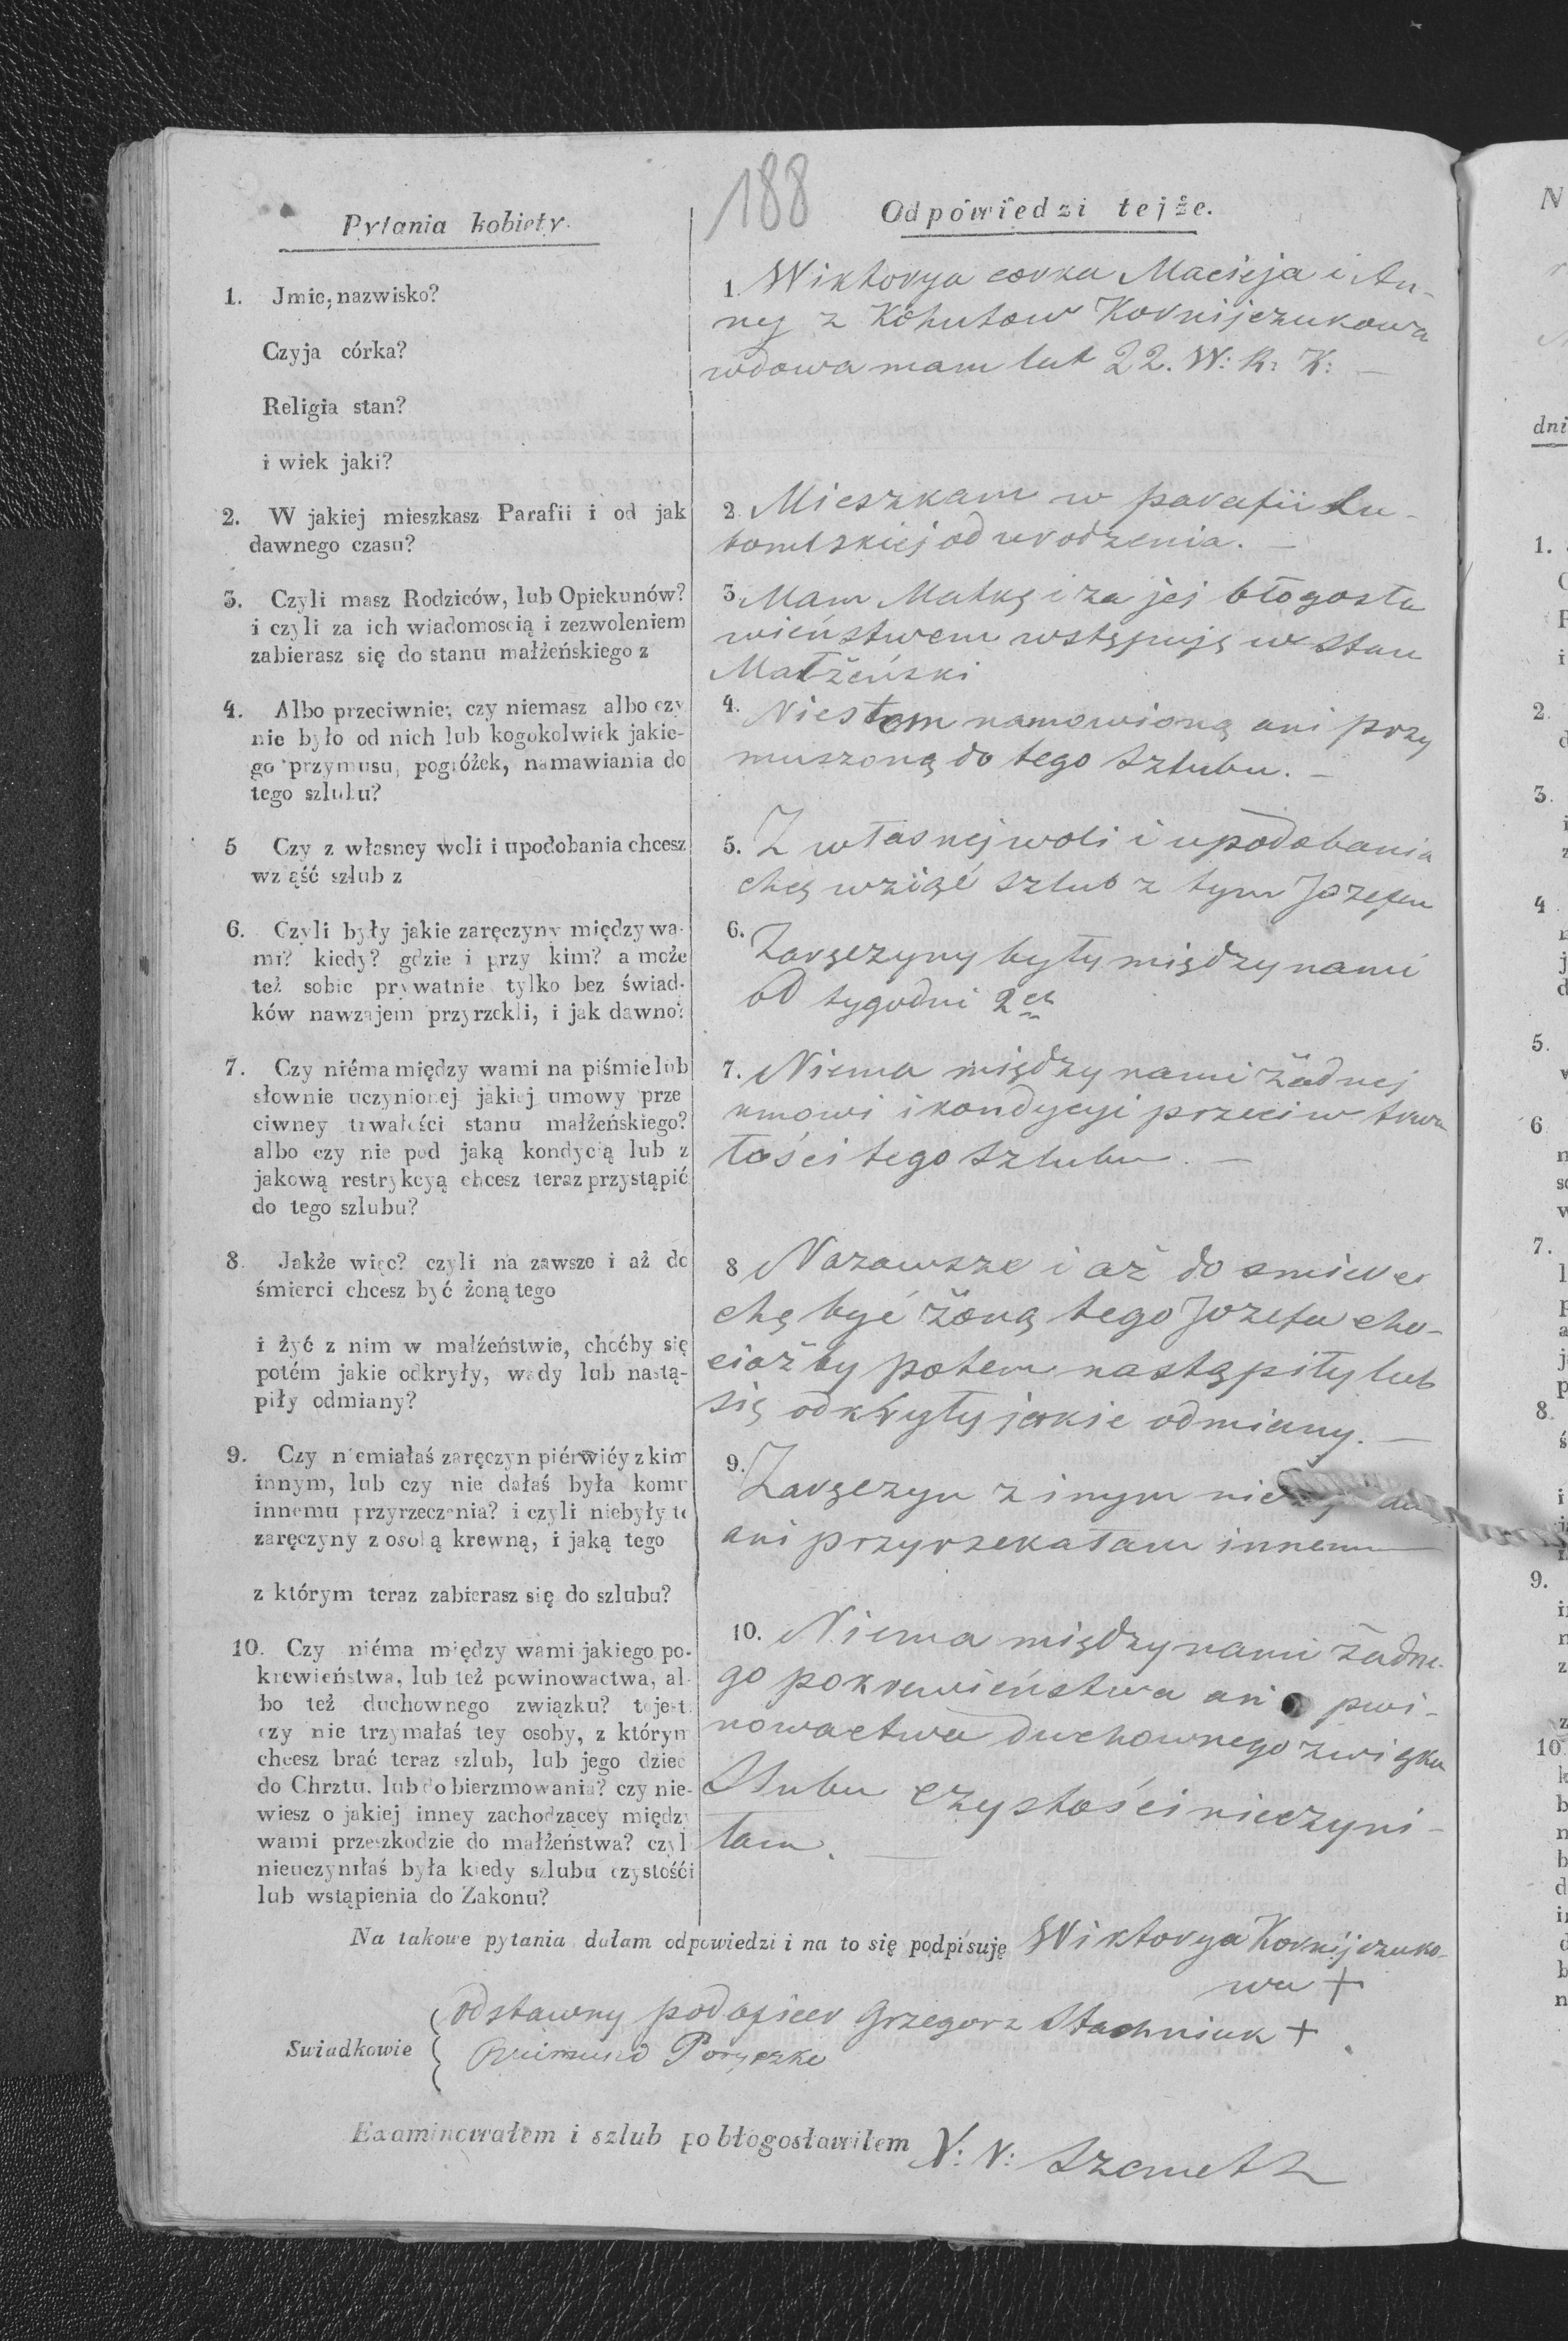 188
Pytania kobiety.
1. Jmie, nazwisko?
Czyja córka?
Religia stan?
i wiek jaki?
2. W jakiej mieszkasz Parafii i od jak
dawnego czasu?
3. Czyli masz Rodziców, lub Opiekunów?
i czyli za ich wiadomoscią i zezwoleniem
zabierasz się do stanu małżeńskiego z
4. Albo przeciwnie; czy niemasz albo czy
nie było od nich lub kogokolwiek jakie-
go przymusu, pogróżek, namawiania do
tego szlubu?
5 Czy z własney woli i upodobania chcesz
wziąść szlub z
6. Czyli były jakie zaręczyny między wa-
mi? kiedy? gdzie i przy kim? a może
też sobie prywatnie tylko bez świad-
ków nawzajem przyrzekli, i jak dawno?
7. Czy niéma między wami na piśmie lub
słownie uczynionej jakiej umowy prze
ciwney trwałości stanu małżeńskiego?
albo czy nie pod jaką kondycią lub z
jakową restrykcyą chcesz teraz przystąpić
do tego szlubu?
8. Jakże więc? czyli na zawsze i aż do
śmierci chcesz być żoną tego
i żyć z nim w małżeństwie, choćby się
potém jakie odkryły, wady lub nastą-
piły odmiany?
9. Czy niemiałaś zaręczyn piérwiéy z kim
innym, lub czy nie dałaś była komu
innemu przyrzeczenia? i czyli niebyły te
zaręczyny z osobą krewną, i jaką tego
z którym teraz zabierasz się do szlubu?
10. Czy niéma między wami jakiego po-
krewieństwa, lub też powinowactwa, al-
bo też duchownego związku? to jest
czy nie trzymałaś tey osoby, z którym
chcesz brać teraz szlub, lub jego dziec
do Chrztu, lub do bierzmowania? czy nie-
wiesz o jakiej inney zachodzącey między
wami przeszkodzie do małżeństwa? czyl
nieuczyniłaś była kiedy szlubu czystośći
lub wstąpienia do Zakonu?
Odpówiedzi tejże.
1. Wiktorya corka Macieja i An-
ny z Kohutow Kornijczukowa
wdowa mam lat 22. W: R: K: —
2. Mieszkam w parafii Lu-
bomlskiej od urodzenia. —
3. Mam Matkę i za jej błogosła
wieństwem wstępuję w stan
Małżeński
4. Niestem namowioną ani przy
muszoną do tego szlubu. —
5. Z własnej woli i upodobania
chcę wziąć szlub z tym Jozefem
6. Zaręczyny były między nami
od tygodni 2ch
7. Niema między nami żadnej
umowi i kondycyi przeciw trwa
łości tego szlubu. —
8 Nazawsze i aż do smierci
chę być żoną tego Jozefa cho-
ciażby potem nastąpiły lub
się odkryły jakie odmiany. —
9. Zaręczyn z inym
ani przyrzekałam innemu
10. Niema między nami żadne-
go pokrewieństwa ani pwi-
nowactwa duchownego związku
Slubu czystości nieczyni-
łam. —
Na takowe pytania dałam odpowiedzi i na to się podpisuję Wiktorya Kornijczuko-
wa +
Swiadkowie
odstawny podoficer Grzegorz Stachniuk +
Examinowałem i szlub pobłogosławiłem